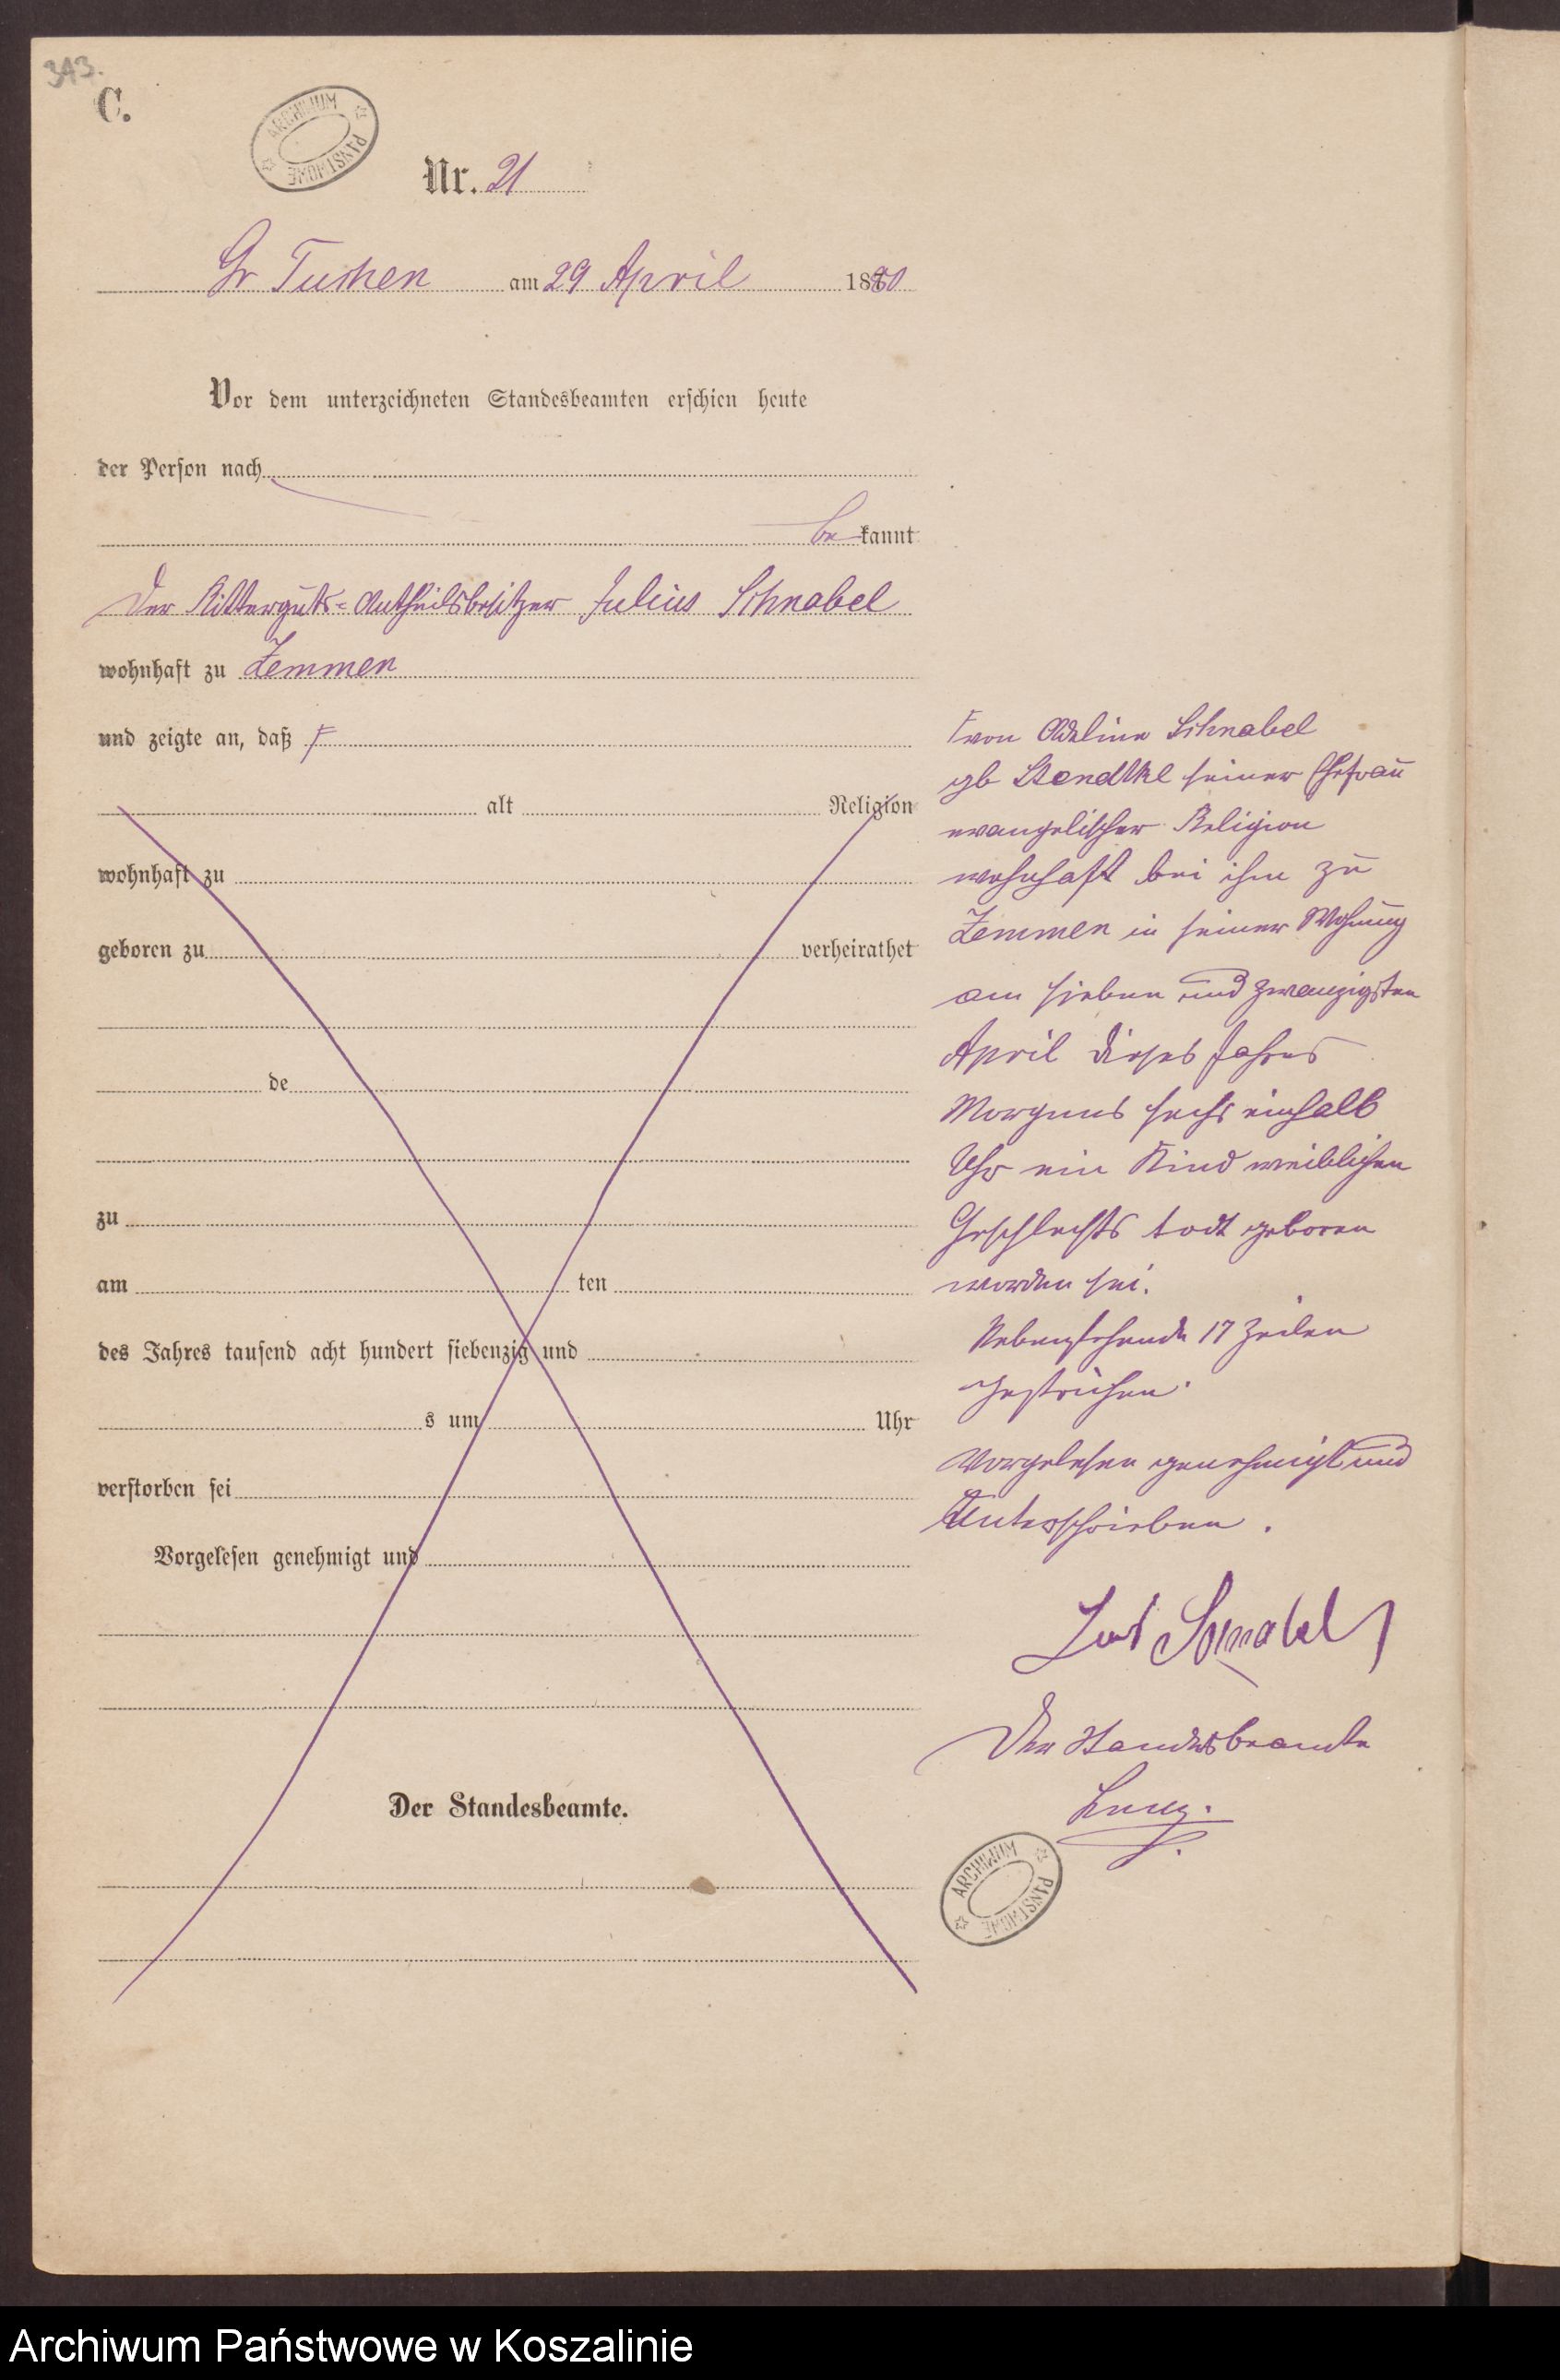 343.
C.
ARCHIWUM PAŃSTWOWE
Nr. 21
Gr Tuchen am 29 April 1880
Vor dem unterzeichneten Standesbeamten erschien heute
der Person nach
be kannt
Der Ritterguts-Antheilsbesitzer Julius Schnabel
wohnhaft zu Zemmen
und zeigte an, daß F
alt Religion
wohnhaft zu
geboren zu verheirathet
de
zu
am ten
des Jahres tausend acht hundert siebenzig und
s um Uhr
verstorben sei
Vorgelesen genehmigt und
Der Standesbeamte.
F von Adeline Schnabel
gb seiner Ehefrau
evangelischer Religion
wohnhaft bei ihm zu
Zemmen in seiner Wohnung
am sieben und zwanzigsten
April dieses Jahres
Morgens sechs einhalb
Uhr ein Kind weiblichen
Geschlechts todt geboren
worden sei.
Nebenstehende 17 Zeilen
gestrichen.
Vorgelesen genehmigt und
Unterschrieben.
Schnabel
Der Standesbeamte
ARCHIWUM PAŃSTWOWE
Archiwum Państwowe w Koszalinie